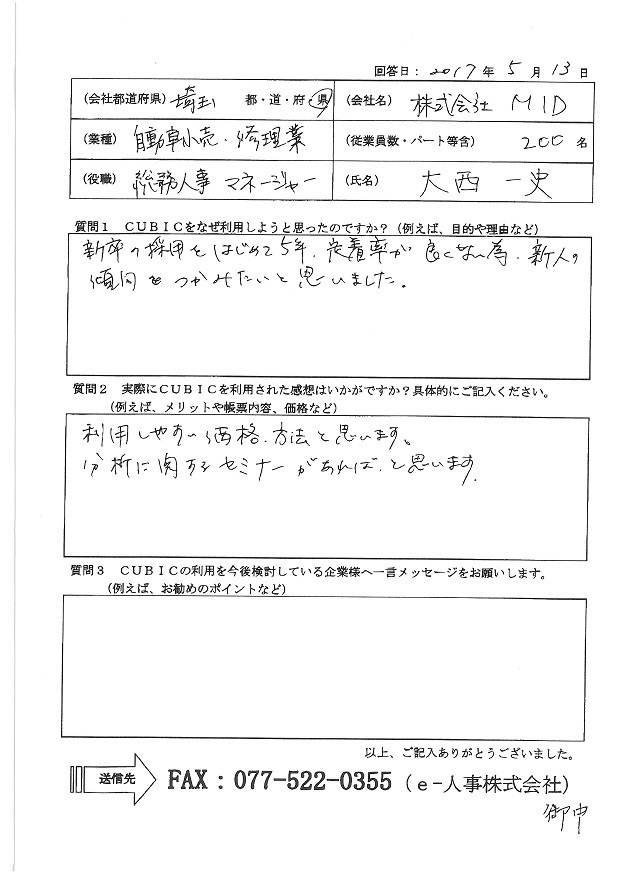 回答日：2017年 5月 13日
（会社都道府県） 埼玉 都・道・府・県 （会社名） 株式会社 MID
（業種） 自動車小売・修理業 （従業員数・パート等含） 200 名
（役職） 総務人事 マネージャー （氏名） 大西 一史
質問１ ＣＵＢＩＣをなぜ利用しようと思ったのですか？（例えば、目的や理由など）
新卒の採用をはじめて5年、定着率が良くない為、新人の
傾向をつかみたいと思いました。
質問２ 実際にＣＵＢＩＣを利用された感想はいかがですか？具体的にご記入ください。
（例えば、メリットや帳票内容、価格など）
利用しやすい価格、方法と思います。
分析に関するセミナーがあれば、と思います。
質問３ ＣＵＢＩＣの利用を今後検討している企業様へ一言メッセージをお願いします。
（例えば、お勧めのポイントなど）
以上、ご記入ありがとうございました。
送信先 FAX：077-522-0355（ｅ－人事株式会社）
御中